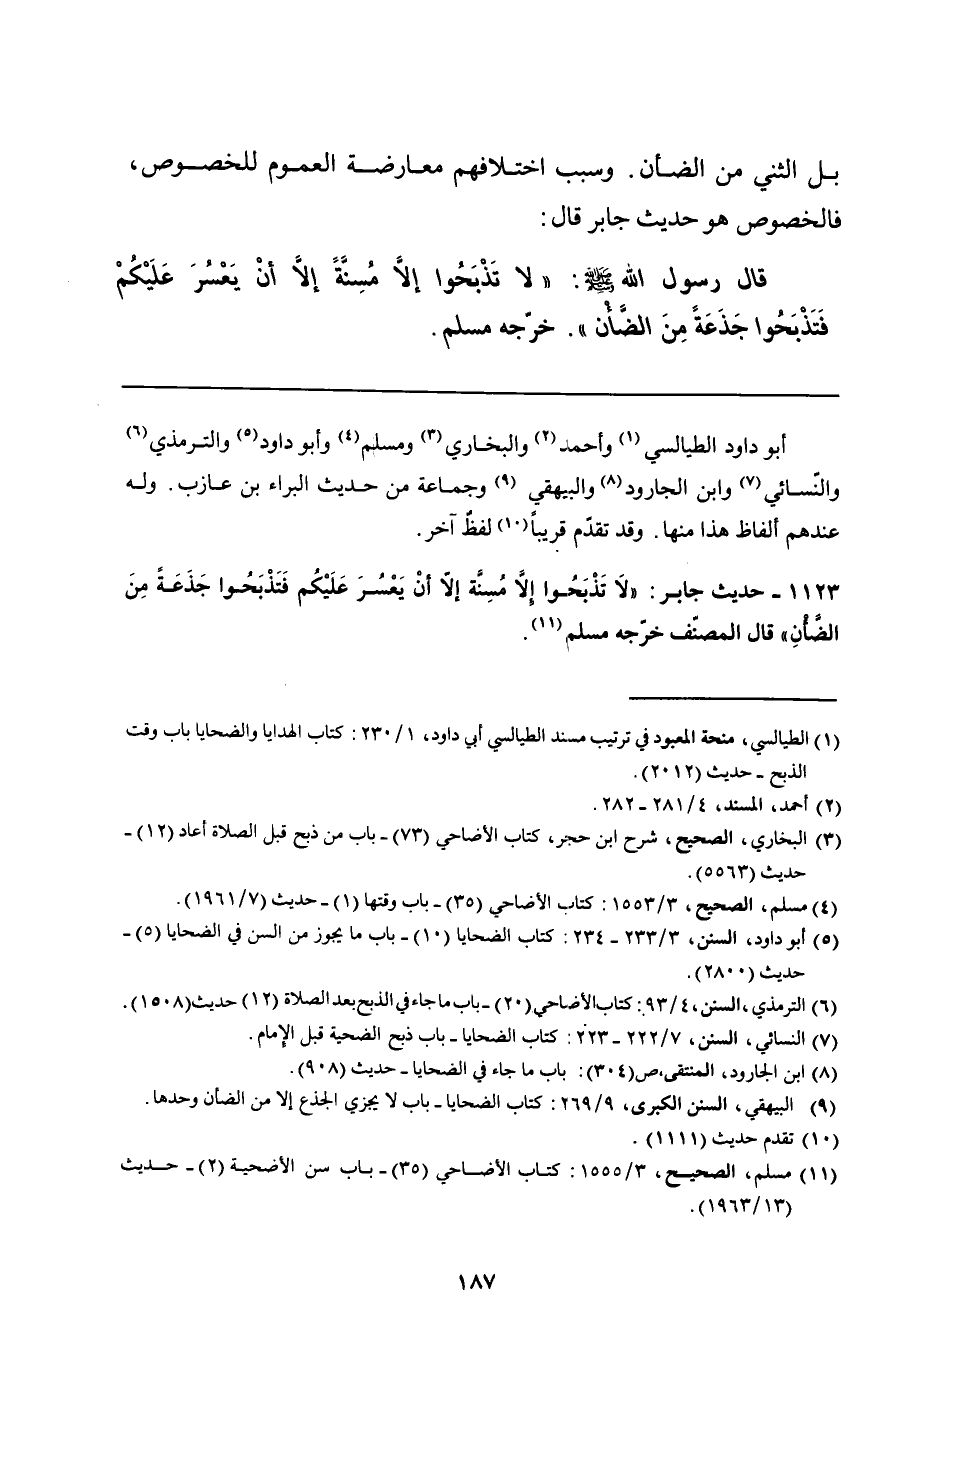 بـل الثني من الضـأن. وسبب اختـلافهم معـارضـة العمـوم للخصـوص،
فالخصوص هو حديث جابر قال:
قال رسول الله ﷺ: « لا تَذْبَحُوا إلاَّ مُسِنَّةً إلاَّ أنْ يَعْسُرَ عَلَيْكُمْ
فَتَذْبَحُوا جَذَعَةً مِنَ الضَّأْنِ ». خرّجه مسلم.
أبو داود الطيالسي(١) وأحمد(٢) والبخـاري(٣) ومسلم(٤) وأبو داود(٥) والتـرمذي(٦)
والنّسـائي(٧) وابن الجارود(٨) والبيهقي (٩) وجمـاعة من حـديث البراء بن عـازب. ولـه
عندهم ألفاظ هذا منها. وقد تقدّم قريباً(١٠) لفظٌ آخر.
١١٢٣ ـ حديث جابـر: «لَا تَذْبَحُـوا إِلَّا مُسِنَّة إلاّ أنْ يَعْسُـرَ عَلَيْكُم فَتَذْبَحُـوا جَذَعَـةً مِنَ
الضَّأْنِ» قال المصنّف خرّجه مسلم(١١).
(١) الطيالسي، منحة المعبود في ترتيب مسند الطيالسي أبي داود، ١/ ٢٣٠: كتاب الهدايا والضحايا باب وقت
الذبح ـ حديث (٢٠١٢).
(٢) أحمد، المسند، ٤/ ٢٨١ ـ ٢٨٢.
(٣) البخاري، الصحيح، شرح ابن حجر، كتاب الأضاحي (٧٣) ـ باب من ذبح قبل الصلاة أعاد (١٢) ـ
حديث (٥٥٦٣).
(٤) مسلم، الصحيح، ٣/ ١٥٥٣: كتاب الأضاحي (٣٥) ـ باب وقتها (١) ـ حديث (٧/ ١٩٦١).
(٥) أبو داود، السنن، ٣/ ٢٣٣ ـ ٢٣٤: كتاب الضحايا (١٠) ـ باب ما يجوز من السن في الضحايا (٥) ـ
حديث (٢٨٠٠).
(٦) الترمذي، السنن، ٤/ ٩٣: كتاب الأضاحي (٢٠) ـ باب ما جاء في الذبح بعد الصلاة (١٢) حديث (١٥٠٨).
(٧) النسائي، السنن، ٧/ ٢٢٢ ـ ٢٢٣: كتاب الضحايا ـ باب ذبح الضحية قبل الإمام.
(٨) ابن الجارود، المنتقى، ص (٣٠٤): باب ما جاء في الضحايا ـ حديث (٩٠٨).
(٩) البيهقي، السنن الكبرى، ٩/ ٢٦٩: كتاب الضحايا ـ باب لا يجزي الجذع إلا من الضأن وحدها.
(١٠) تقدم حديث (١١١١).
(١١) مسلم، الصحيـح، ٣/ ١٥٥٥: كتـاب الأضـاحي (٣٥) ـ بـاب سن الأضحيـة (٢) ـ حـديث
(١٣/ ١٩٦٣).
١٨٧